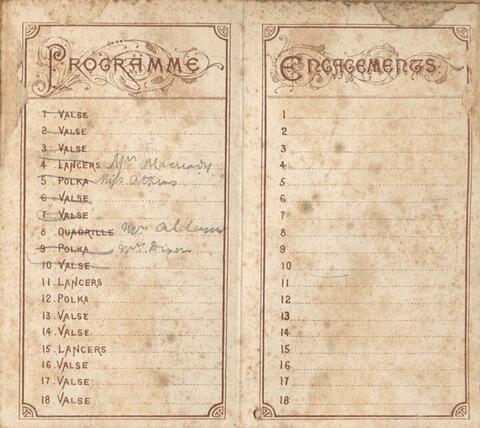 PROGRAMME
1 VALSE
2 VALSE
3 VALSE
4 LANCERS Mrs
5 POLKA Miss Atkins
6 VALSE
7 VALSE
8 QUADRILLE
9 POLKA
10 VALSE
11 LANCERS
12 POLKA
13 VALSE
14 VALSE
15 LANCERS
16 VALSE
17 VALSE
18 VALSE
ENGAGEMENTS
1
2
3
4
5
6
7
8
9
10
11
12
13
14
15
16
17
18